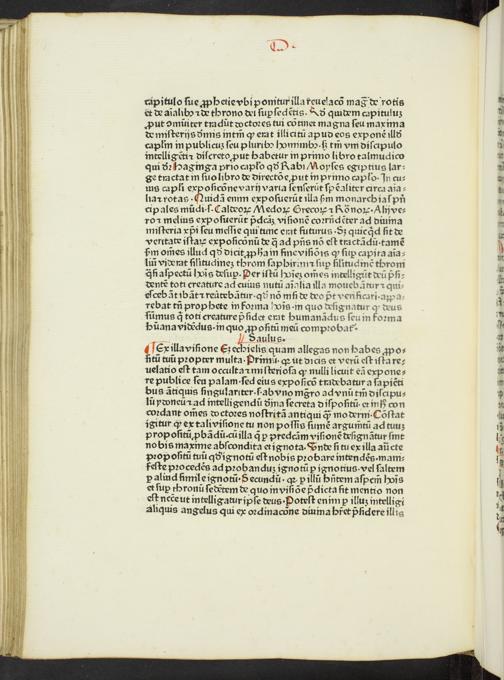 D.
capitulo sue ꝓphetie vbi ponitur illa reuelacō mag̅ de rotis
et de aīalibꝫ ⁊ de throno dei suꝑ sedētis. Qd̄ quidem capituluꝫ
ꝓut ōmuiter tradūt doctores tui cōtinet magna seu maxima
de misterijs
capl̄m in publicuꝫ seu pluribꝫ hominibꝫ. sꝫ tm̄ vni discipulo
intelligēti ⁊ discreto, put habetur in primo libro talmudico
qui dr̄ Haginga prīo caplo qd̄ Rabi Moyses egiptius lar⸗
ge tractat in suo libro de directōe, put in primo caplo. In cu⸗
ius capl̄i exposicōne varij varia senserūt spēaliter circa aīa⸗
lia ⁊ rotas. Quidā enim exposuerūt illa ẜm monarchias pⁿ
cipales mūdi. s. Caldeoꝝ Medoꝝ Grecoꝝ ⁊ Romoꝝ. Alij ve⸗
ro ⁊ melius exposuerūt p̄dcāꝫ visionē cōrn̄dēter ad diuina
misteria xp̄i seu messie qui tunc erat futurus. Sꝫ quicqd̄ sit de
veritate istaꝝ exposiconū de q̄ ad pn̄s nō est tractādū. tamē
ẜm om̄es illud qd̄ dicit ꝓpha in fine visiōis
liū viderat silitudineꝫ throni saphirini ⁊ suꝑ silitudinē throni
q̄si aspectū hoīs desuꝑ. Per istū hoīeꝫ om̄es intelligūt deū p̄si⸗
dentē toti creature ad cuius nutū aīalia illa mouebātur ⁊ qui⸗
escebāt ibāt ⁊ reuertebātur. qd̄ nō nisi de deo pt̄ verificari. appa⸗
rebat tn̄ prophete in forma hoīs. in quo designatur qꝫ deus
sūmus qui toti creature p̄sidet erat humanādus seu in forma
hūana videndus. in quo ꝓpositū meū comprobat̄.
Saulus.
EX illa visione Ezechielis quam allegas non habes ꝓpo⸗
sitū tuū propter multa. Primū. qꝫ vt dicis et verū est ista re⸗
uelatio est tam occulta ⁊ misteriosa qꝫ nulli licuit eā expone⸗
re publice seu palam. sed eius exposicō tradebatur a sapiēti⸗
bus ātiquis singulariter. s. ab vno mgr̄o ad vnū tm̄ discipu⸗
lū ydoneū ⁊ ad intelligendū diuina secreta dispositū. et in
cordant om̄es doctores nostri tā antiqui qꝫ moderni. Cōstat
igitur qꝫ ex tali visione tu non possis sumē argumētū ad tuuꝫ
propositū, ꝓbādū. cū illa q̄ ꝑ predcām visionē designātur sint
nobis maxime abscondita et ignota. Vnde si tu ex illa aucte
propositū tuū qd̄ ignotū est nobis probare intendēs. mani⸗
feste procedēs ad probanduꝫ ignotū ꝑ ignotius. vel saltem
ꝑ aliud simile ignotū. Secundū. qꝫ ꝑ illū hn̄tem aspcm̄ hoīs
et suꝑ thronū sedētem de quo in visiōe p̄dicta fit mentio non
est necē vt intelligatur ip̄se deus. Potest enim ꝑ illuꝫ intelligi
aliquis angelus qui ex ordinacōne diuina hr̄et p̄sidere illis